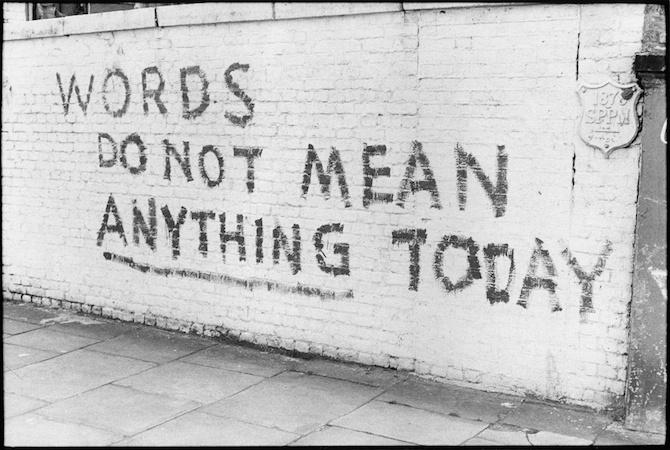 WORDS
DO NOT MEAN
ANYTHING TODAY
187
SPPM